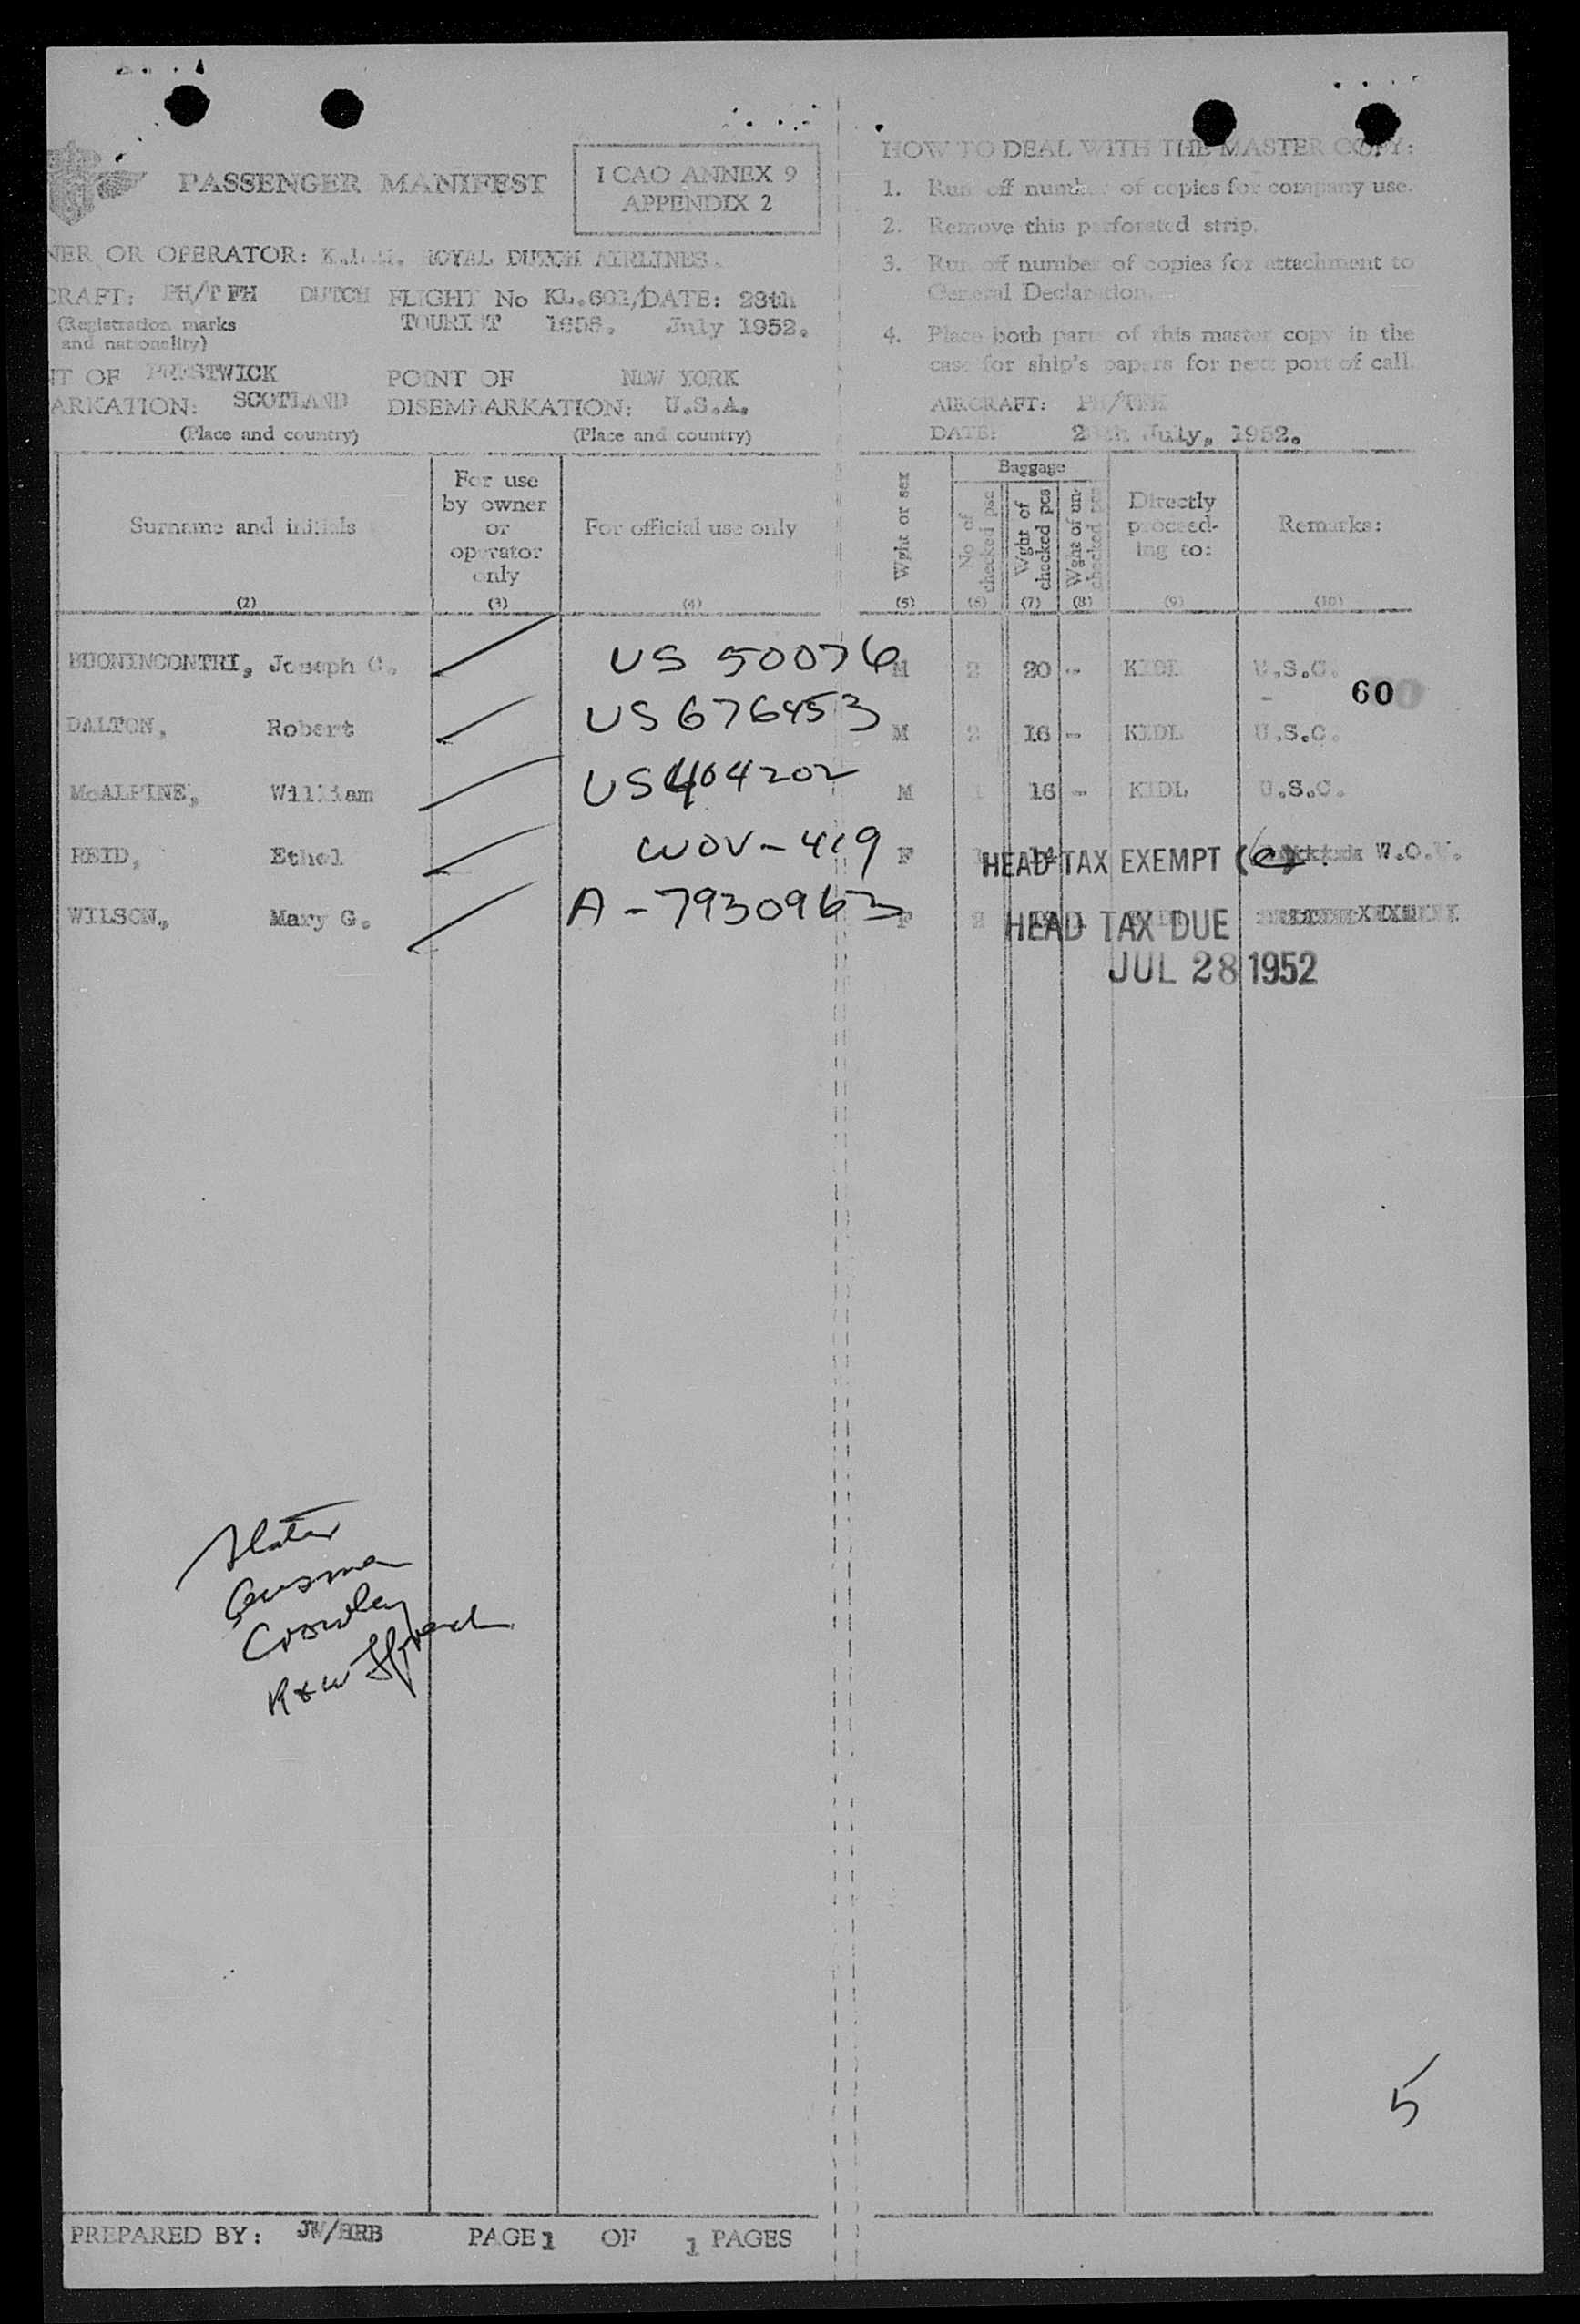 PASSENGER MANIFEST
I CAO ANNEX 9
APPENDIX 2
NER OR OPERATOR: K.L.M. ROYAL DUTCH AIRLINES.
CRAFT: PH/TFH DUTCH FLIGHT No KL.601/DATE: 28th
(Registration marks TOURIST 1658. July 1952.
and nationality)
NT OF PRESTWICK POINT OF NEW YORK
ARKATION: SCOTLAND DISEMBARKATION: U.S.A.
(Place and country) (Place and country)
HOW TO DEAL WITH THE MASTER COPY:
1. Run off number of copies for company use.
2. Remove this perforated strip.
3. Run off number of copies for attachment to
General Declaration.
4. Place both parts of this master copy in the
case for ship's papers for next port of call.
AIRCRAFT: PH/TFH
DATE: 28th July, 1952.
Surname and initials
(2)
For use
by owner
or
operator
only
(3)
For official use only
(4)
Wght or sex
(5)
Baggage
No of
checked pcs
(6)
Wght of
checked pcs
(7)
Wght of un-
checked pcs
(8)
Directly
proceed-
ing to:
(9)
Remarks:
(10)
BUONINCONTRI, Joseph C. US 50076 M 2 20 - KIDL U.S.C.
600
DALTON, Robert US 676453 M 2 16 - KIDL U.S.C.
McALPINE, William US 404202 M 1 16 - KIDL U.S.C.
REID, Ethel WOV-419 F 1 HEAD TAX EXEMPT W.O.V.
WILSON, Mary G. A-7930963 F 2 HEAD TAX DUE
JUL 28 1952
Slater
Crowley
5
PREPARED BY: JW/HRB PAGE 1 OF 1 PAGES